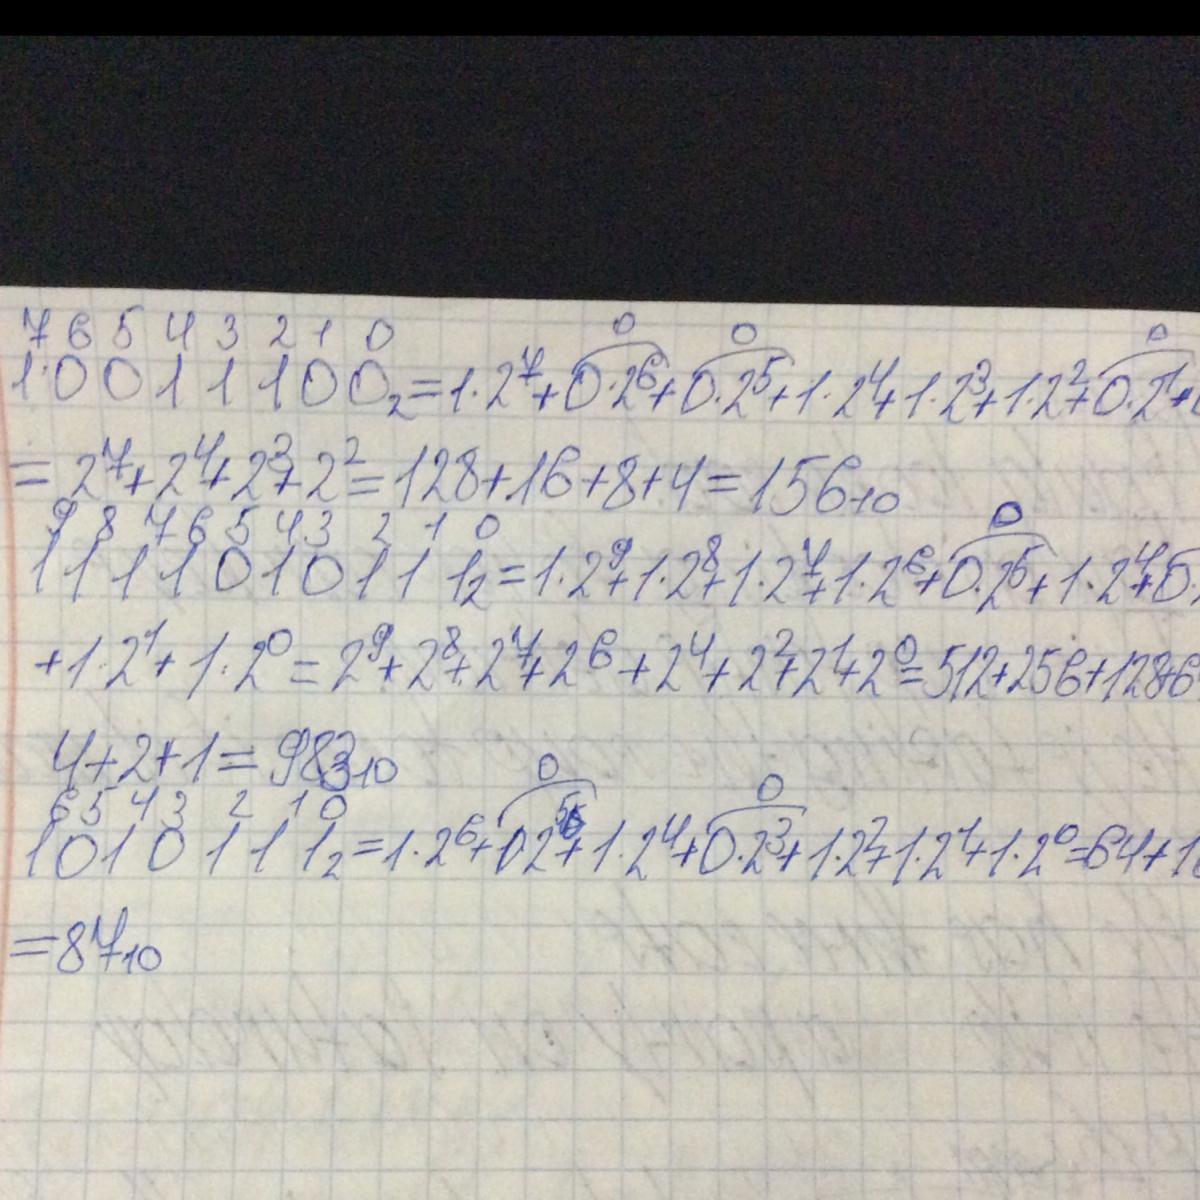 7 6 5 4 3 2 1 0
1·0 0 1 1 1 0 0₂ = 1·2⁷ + 0·2⁶ + 0·2⁵ + 1·2⁴ + 1·2³ + 1·2² + 0·2¹ +
0 0 0
= 2⁷ + 2⁴ + 2³ + 2² = 128 + 16 + 8 + 4 = 156₁₀
9 8 7 6 5 4 3 2 1 0
0
1 1 1 1 0 1 0 1 1 1₂ = 1·2⁹ + 1·2⁸ + 1·2⁷ + 1·2⁶ + 0·2⁵ + 1·2⁴ + 0·
+ 1·2¹ + 1·2⁰ = 2⁹ + 2⁸ + 2⁷ + 2⁶ + 2⁴ + 2² + 2¹ + 2⁰ = 512 + 256 + 128 + 6
4 + 2 + 1 = 983₁₀
0 0
6 5 4 3 2 1 0
1 0 1 0 1 1 1₂ = 1·2⁶ + 02⁵ + 1·2⁴ + 0·2³ + 1·2² + 1·2¹ + 1·2⁰ = 64 + 1
= 87₁₀